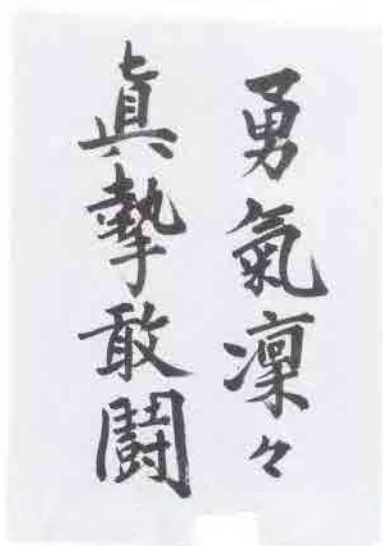 勇氣凜々
眞摯敢闘